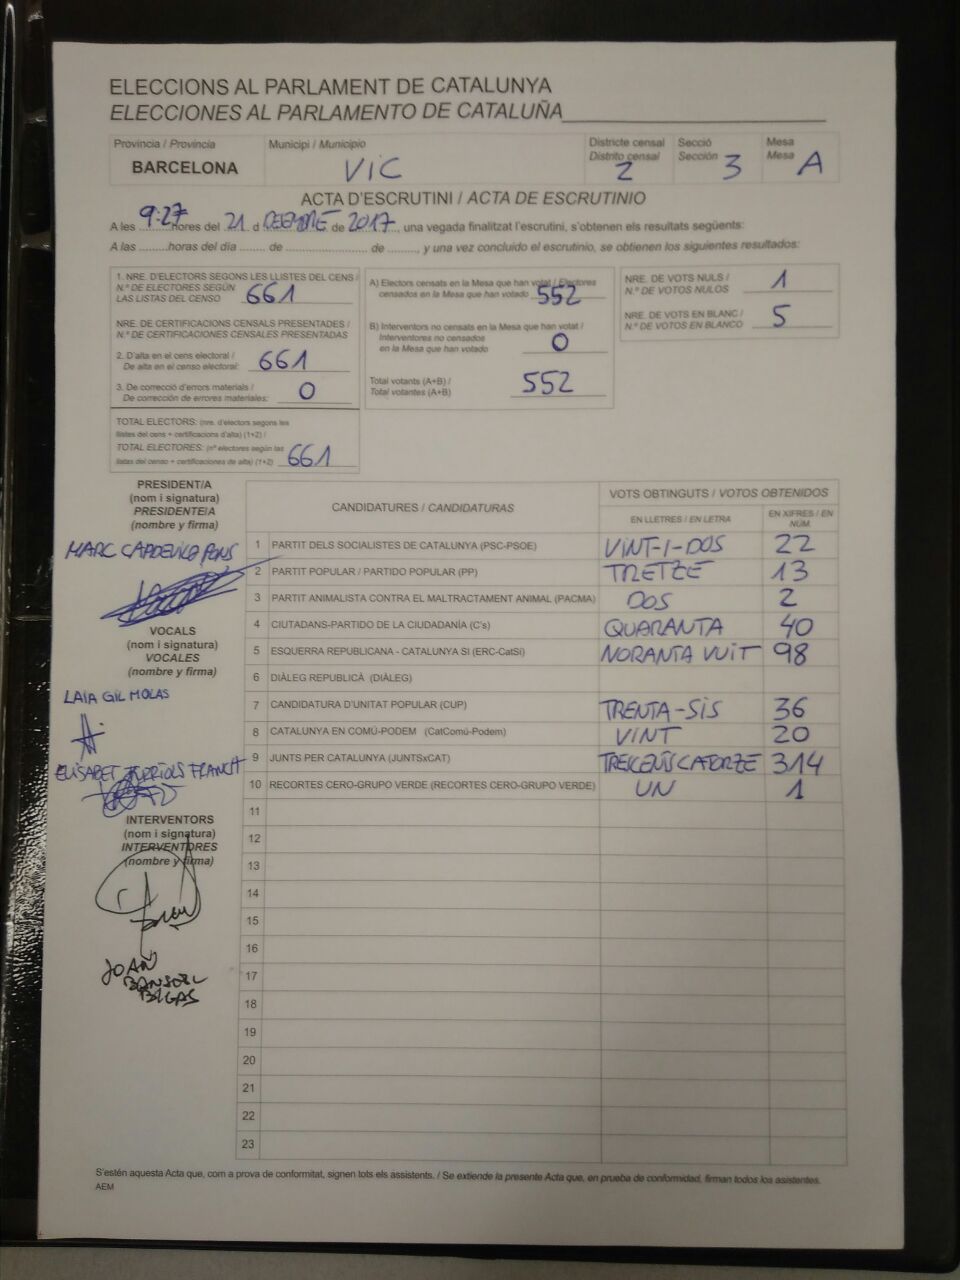 ELECCIONS AL PARLAMENT DE CATALUNYA
ELECCIONES AL PARLAMENTO DE CATALUÑA
Província / Provincia
BARCELONA
Municipi / Municipio
VIC
Districte censal
Distrito censal
2
Secció
Sección
3
Mesa
Mesa
A
ACTA D'ESCRUTINI / ACTA DE ESCRUTINIO
A les 9:27 hores del 21 d DESEMBRE de 2017, una vegada finalitzat l'escrutini, s'obtenen els resultats següents:
A las .........horas del día ....... de ..................... de ........, y una vez concluido el escrutinio, se obtienen los siguientes resultados:
1. NRE. D'ELECTORS SEGONS LES LLISTES DEL CENS /
N.º DE ELECTORES SEGÚN
LAS LISTAS DEL CENSO 661
NRE. DE CERTIFICACIONS CENSALS PRESENTADES /
N.º DE CERTIFICACIONES CENSALES PRESENTADAS
2. D'alta en el cens electoral /
De alta en el censo electoral: 661
3. De correcció d'errors materials /
De corrección de errores materiales: 0
TOTAL ELECTORS: (nre. d'electors segons les
llistes del cens + certificacions d'alta) (1+2) /
TOTAL ELECTORES: (nº electores según las
listas del censo + certificaciones de alta) (1+2) 661
A) Electors censats en la Mesa que han votat / Electores
censados en la Mesa que han votado 552
B) Interventors no censats en la Mesa que han votat /
Interventores no censados
en la Mesa que han votado 0
Total votants (A+B) /
Total votantes (A+B) 552
NRE. DE VOTS NULS /
N.º DE VOTOS NULOS 1
NRE. DE VOTS EN BLANC /
N.º DE VOTOS EN BLANCO 5
PRESIDENT/A
(nom i signatura)
PRESIDENTE/A
(nombre y firma)
MARC CAPDEVILA PONS
VOCALS
(nom i signatura)
VOCALES
(nombre y firma)
LAIA GIL MOLAS
ELISABET FRANCH
INTERVENTORS
(nom i signatura)
INTERVENTORES
(nombre y firma)
JOAN
BIGAS
CANDIDATURES / CANDIDATURAS
VOTS OBTINGUTS / VOTOS OBTENIDOS
EN LLETRES / EN LETRA
EN XIFRES / EN NÚM.
1 PARTIT DELS SOCIALISTES DE CATALUNYA (PSC-PSOE) VINT-I-DOS 22
2 PARTIT POPULAR / PARTIDO POPULAR (PP) TRETZE 13
3 PARTIT ANIMALISTA CONTRA EL MALTRACTAMENT ANIMAL (PACMA) DOS 2
4 CIUTADANS-PARTIDO DE LA CIUDADANÍA (C's) QUARANTA 40
5 ESQUERRA REPUBLICANA - CATALUNYA SI (ERC-CatSí) NORANTA VUIT 98
6 DIÀLEG REPUBLICÀ (DIÀLEG)
7 CANDIDATURA D'UNITAT POPULAR (CUP) TRENTA-SIS 36
8 CATALUNYA EN COMÚ-PODEM (CatComú-Podem) VINT 20
9 JUNTS PER CATALUNYA (JUNTSxCAT) TRESCENTS CATORZE 314
10 RECORTES CERO-GRUPO VERDE (RECORTES CERO-GRUPO VERDE) UN 1
11
12
13
14
15
16
17
18
19
20
21
22
23
S'estén aquesta Acta que, com a prova de conformitat, signen tots els assistents. / Se extiende la presente Acta que, en prueba de conformidad, firman todos los asistentes.
AEM